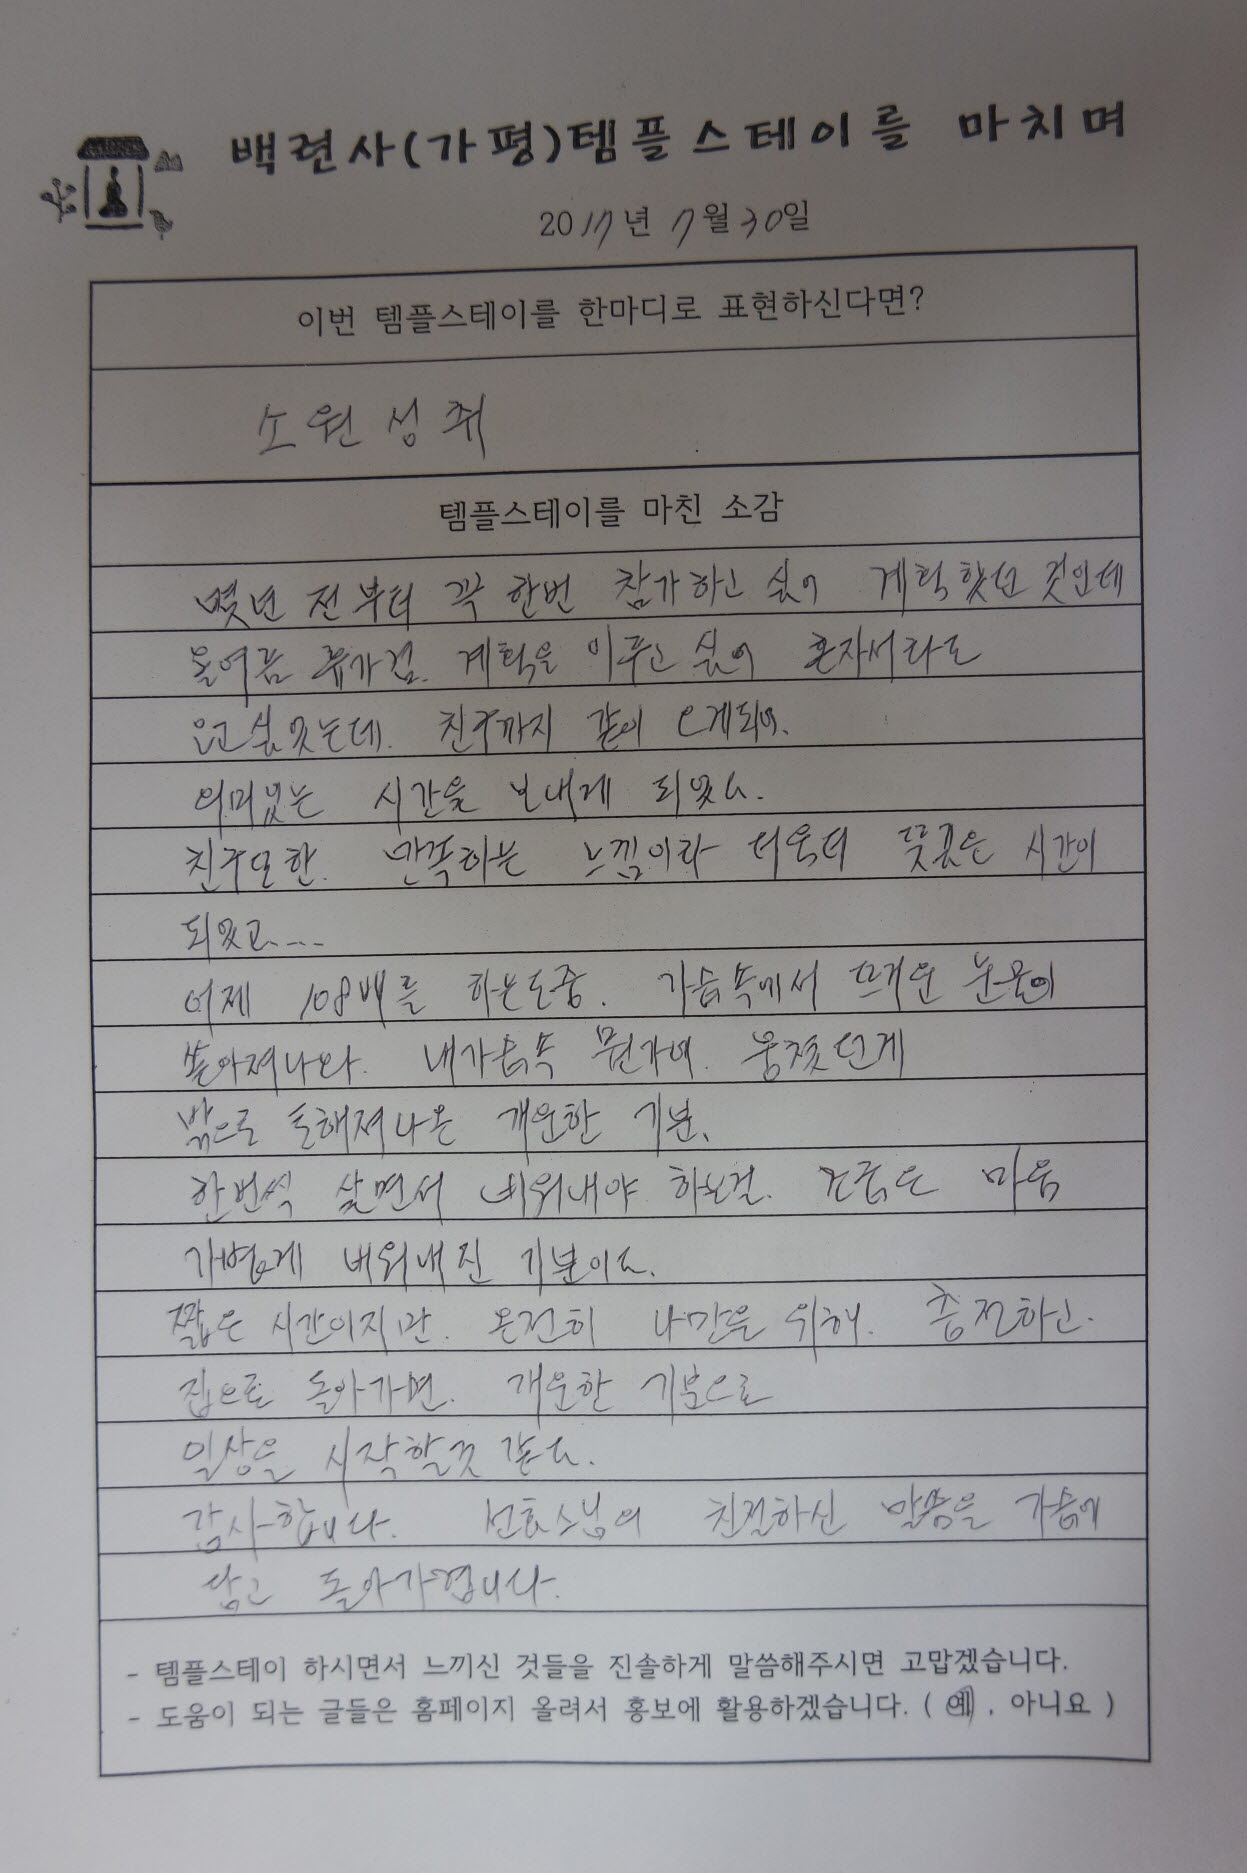 백련사(가평)템플스테이를 마치며
2017년 7월 30일
이번 템플스테이를 한마디로 표현하신다면?
소원성취
템플스테이를 마친 소감
몇년 전부터 꼭 한번 참가하고 싶어 계획했던 것인데
올여름 휴가겸. 계획을 이루고 싶어 혼자서라도
오고싶었는데. 친구까지 같이 오게되어.
의미있는 시간을 보내게 되었다.
친구또한. 만족하는 느낌이라 더욱더 뜻깊은 시간이
되었고....
어제 108배를 하는도중. 가슴속에서 뜨거운 눈물이
쏟아져나와. 내가슴속 뭔가에. 뭉쳤던게
밖으로 토해져나온 개운한 기분.
한번씩 살면서 비워내야 하는걸. 조금은 마음
가볍게 비워내진 기분이다.
짧은 시간이지만. 온전히 나만을 위해. 충전하고.
집으로 돌아가면. 개운한 기분으로
일상을 시작할것 같다.
감사합니다. 선효스님의 친절하신 말씀을 가슴에
담고 돌아가렵니다.
- 템플스테이 하시면서 느끼신 것들을 진솔하게 말씀해주시면 고맙겠습니다.
- 도움이 되는 글들은 홈페이지 올려서 홍보에 활용하겠습니다. ( 예 , 아니요 )